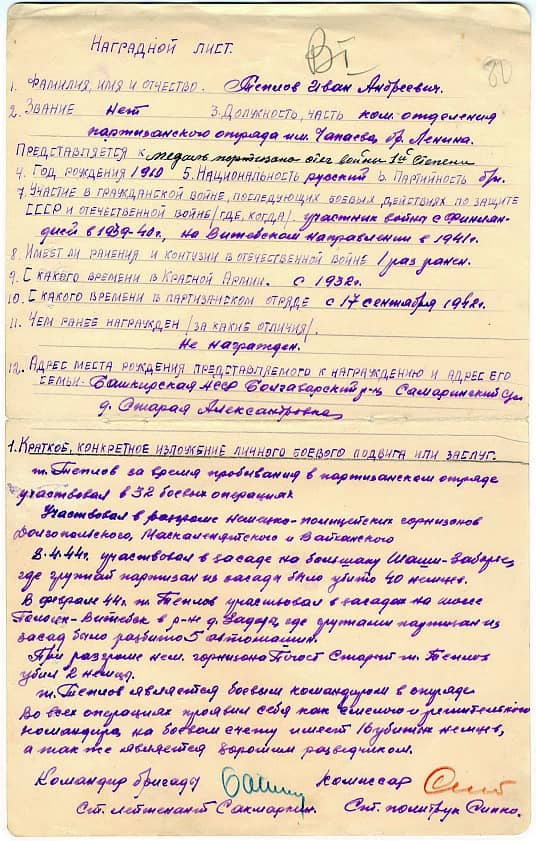 ВI
80
НАГРАДНОЙ ЛИСТ.
1. ФАМИЛИЯ, ИМЯ И ОТЧЕСТВО. Теплов Иван Андреевич.
2. ЗВАНИЕ Нет 3. ДОЛЖНОСТЬ, ЧАСТЬ ком. отделения
партизанского отряда им. Чапаева, бр. Ленина.
ПРЕДСТАВЛЯЕТСЯ К медаль партизана отеч войны 1й степени
4. ГОД РОЖДЕНИЯ 1910 5. НАЦИОНАЛЬНОСТЬ русский 6. ПАРТИЙНОСТЬ б/п.
7. УЧАСТИЕ В ГРАЖДАНСКОЙ ВОЙНЕ, ПОСЛЕДУЮЩИХ БОЕВЫХ ДЕЙСТВИЯХ ПО ЗАЩИТЕ
СССР И ОТЕЧЕСТВЕННОЙ ВОЙНЕ /ГДЕ, КОГДА/ участник войны с Финлян-
дией в 1939-40г., на Витебском направлении в 1941г.
8. ИМЕЕТ ЛИ РАНЕНИЯ И КОНТУЗИИ В ОТЕЧЕСТВЕННОЙ ВОЙНЕ 1 раз ранен.
9. С КАКОГО ВРЕМЕНИ В КРАСНОЙ АРМИИ. с 1932г.
10. С КАКОГО ВРЕМЕНИ В ПАРТИЗАНСКОМ ОТРЯДЕ с 17 сентября 1942г.
11. ЧЕМ РАНЕЕ НАГРАЖДЕН /ЗА КАКИЕ ОТЛИЧИЯ/.
Не награжден.
12. АДРЕС МЕСТА РОЖДЕНИЯ ПРЕДСТАВЛЯЕМОГО К НАГРАЖДЕНИЮ И АДРЕС ЕГО
СЕМЬИ - Башкирская АССР р-н Самаринский
д. Старая Александровка
1. КРАТКОЕ, КОНКРЕТНОЕ ИЗЛОЖЕНИЕ ЛИЧНОГО БОЕВОГО ПОДВИГА ИЛИ ЗАСЛУГ.
т. Теплов за время пребывания в партизанском отряде
участвовал в 32 боевых операциях
Участвовал в разгроме немецко-полицейских гарнизонов
Долгопольского, и
В 4.44г. участвовал в засаде на большаку Шашы-Заборье,
где группой партизан из засады было убито 40 немцев.
В феврале 44г. т. Теплов участвовал в засадах на шоссе
Полоцк-Витебск в р-н д. где группами партизан из
засад было разбито 5 автомашин.
При разгроме нем. гарнизона Погост Старый т. Теплов
убил 2 немца.
т. Теплов является боевым командиром в отряде
Во всех операциях проявил себя как смелого и решительного
командира, на боевом счету имеет 16 убитых немцев,
а так же является хорошим разведчиком.
Командир бригады Комиссар
Ст. лейтенант Сакмаркин. Ст. политрук Сипко.